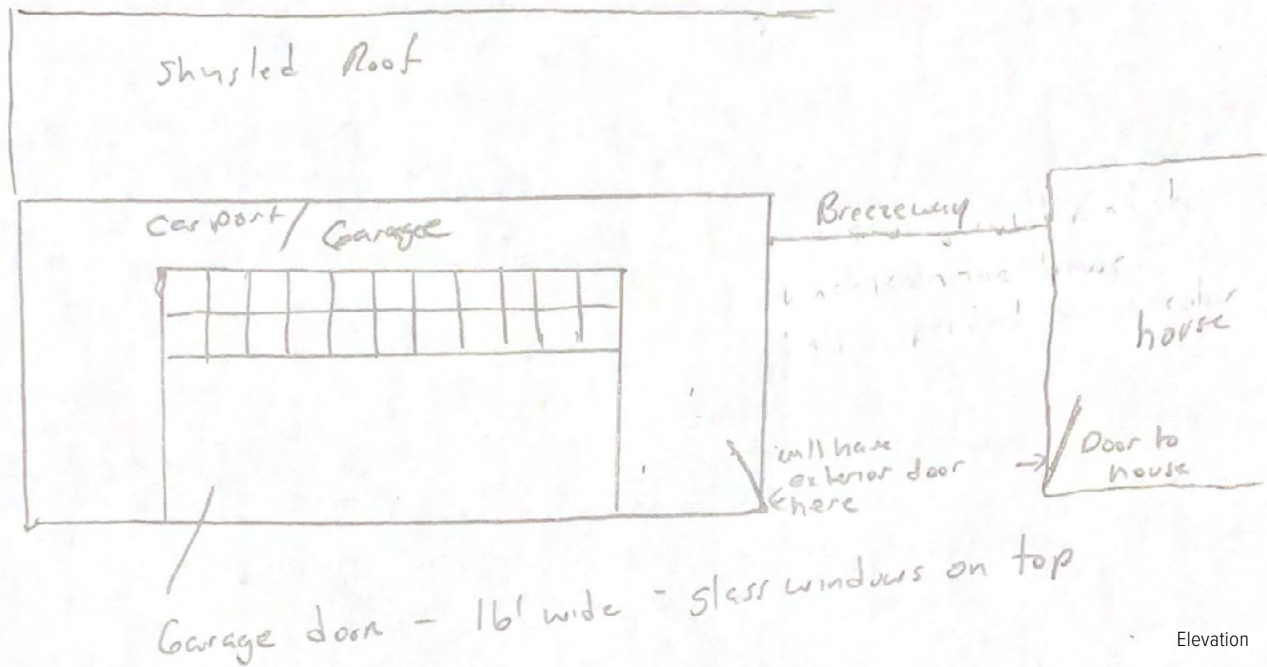 Shingled Roof
Carport / Garagee
Breezeway
house
will have
exterior door
here
Door to
house
Garage door - 16' wide - glass windows on top
Elevation